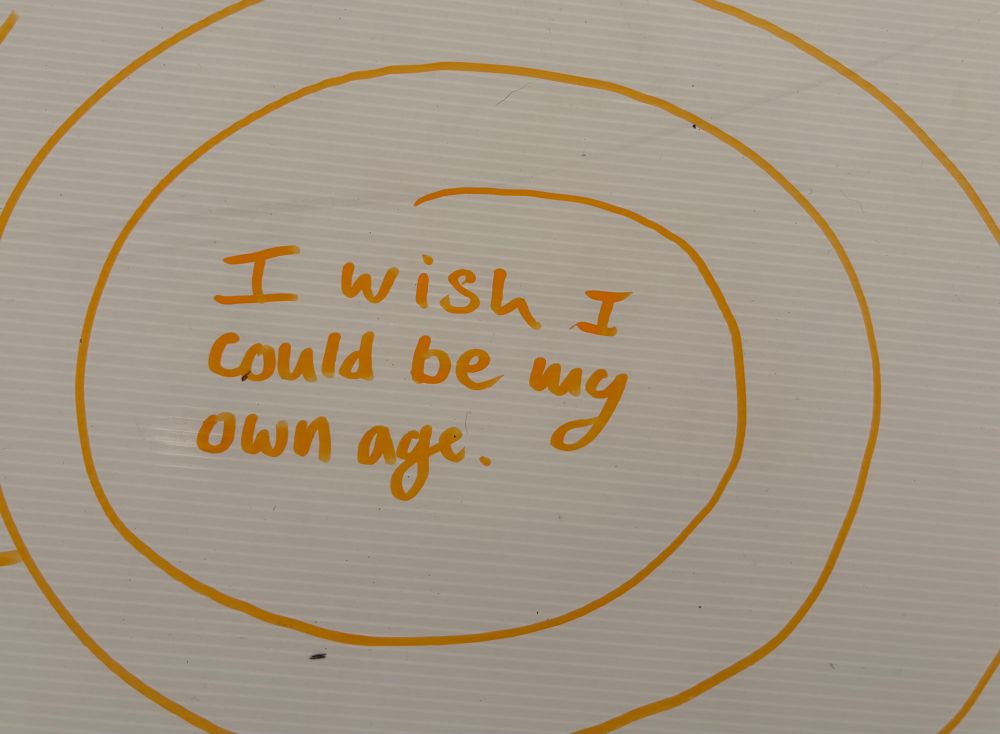 I wish I
could be my
own age.